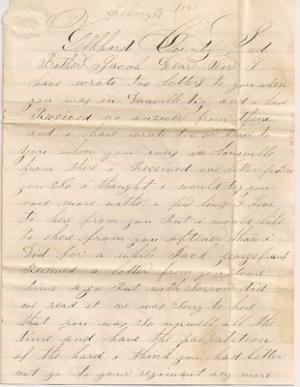 Elkhard County Ind
Brother Jacob Dear Sir I
have wrote too letters to you when
you was in Danville Ky and i have
Received no answer from them
and i have wrote too or three to
you when you was in Louisville
from there i Received one letter from
you So i thought i would try you
once more with a few lines I love
to here from you But i would like
to here from you oftener than i
Did for a while Back george
Received a letter from you some
time a go But with Sorrow did
we read it we was Sorry to here
that you was So unwell all the
time and have the
of the hard i think you had better
not go to your regiment any more